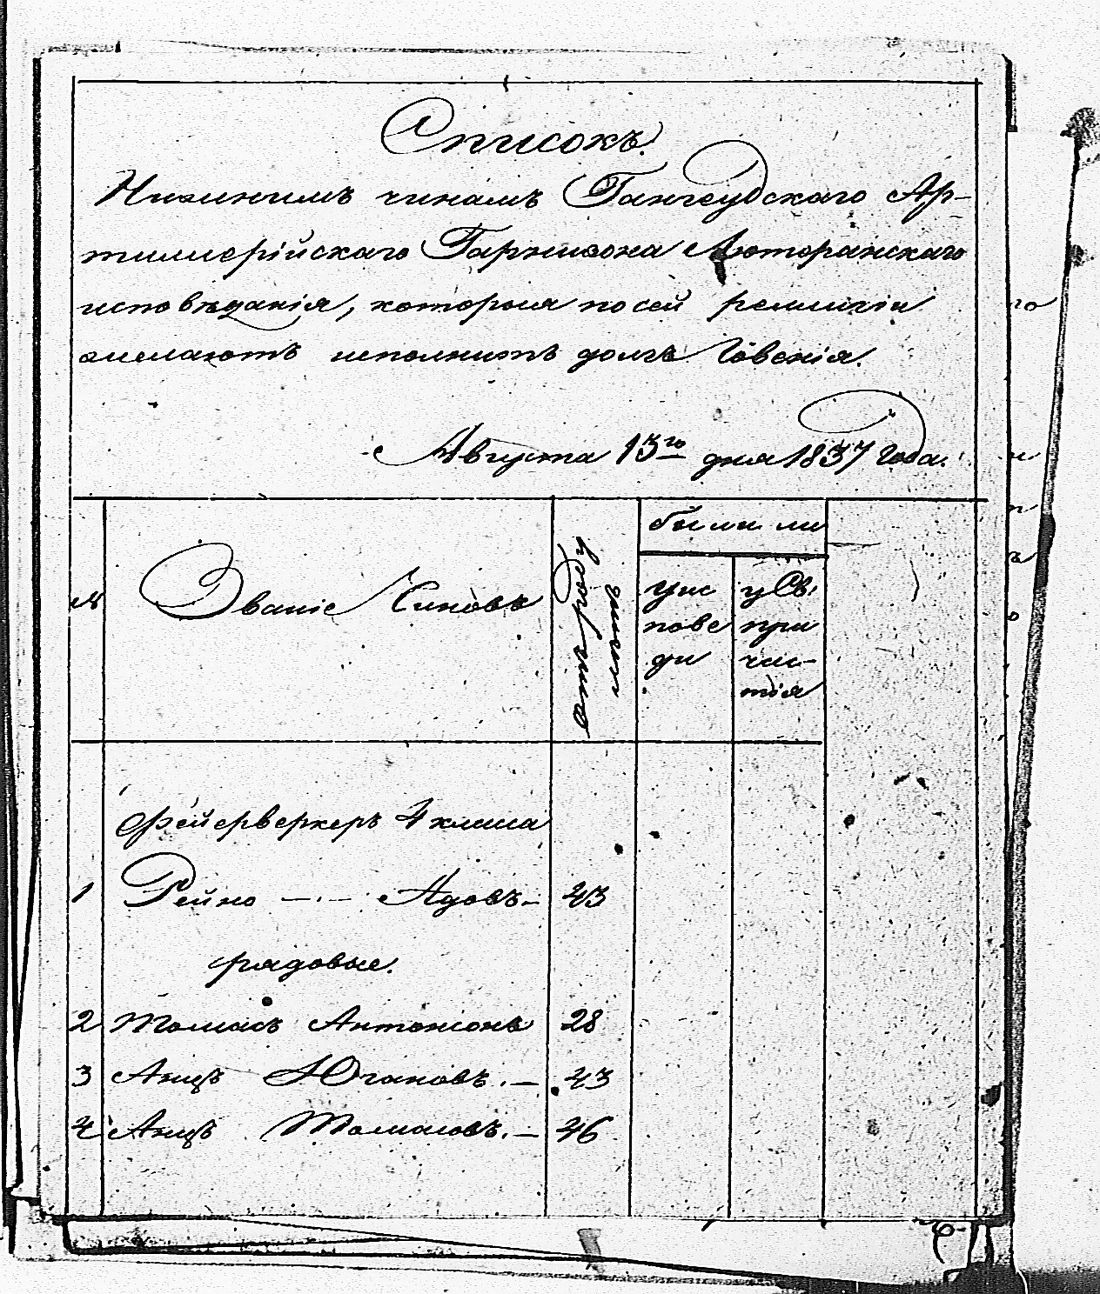 Списокъ.
Нижнимъ чинамъ Гангеудскаго Ар-
тиллерійскаго Гарнизона Лютеранскаго
исповѣданія, которыя по сей религіи
желаютъ исполнить долгъ Говенія.
Августа 13го дня 1837 Года.
№
Званіе Чиновъ
отъ роду
лѣтъ
были ли
у ис
пове
ди
у Св.
при
час-
тія
Фейерверкеръ 4 класа
1 Рейно — . — Адовъ — 43
рядовые.
2 Томасъ Антонсонъ 28
3 Анцъ Югановъ. — 43
4 Анцъ Томасовъ. — 46